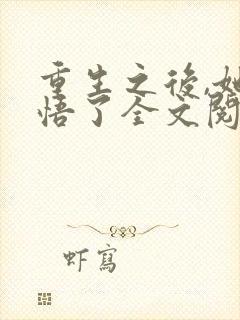 重生之後,她
悟了全文閱
虾寫